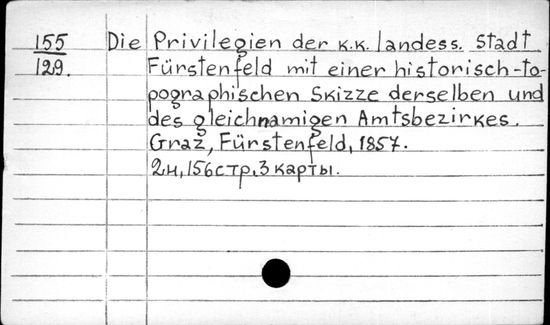 155 Die Privilegien der K.K. landess. Stadt
129. Fürstenfeld mit einer historisch-to-
pographischen Skizze derselben und
des gleichnamigen Amtsbezirkes.
Graz, Fürstenfeld, 1857.
2н, 156 стр. 3 карты.